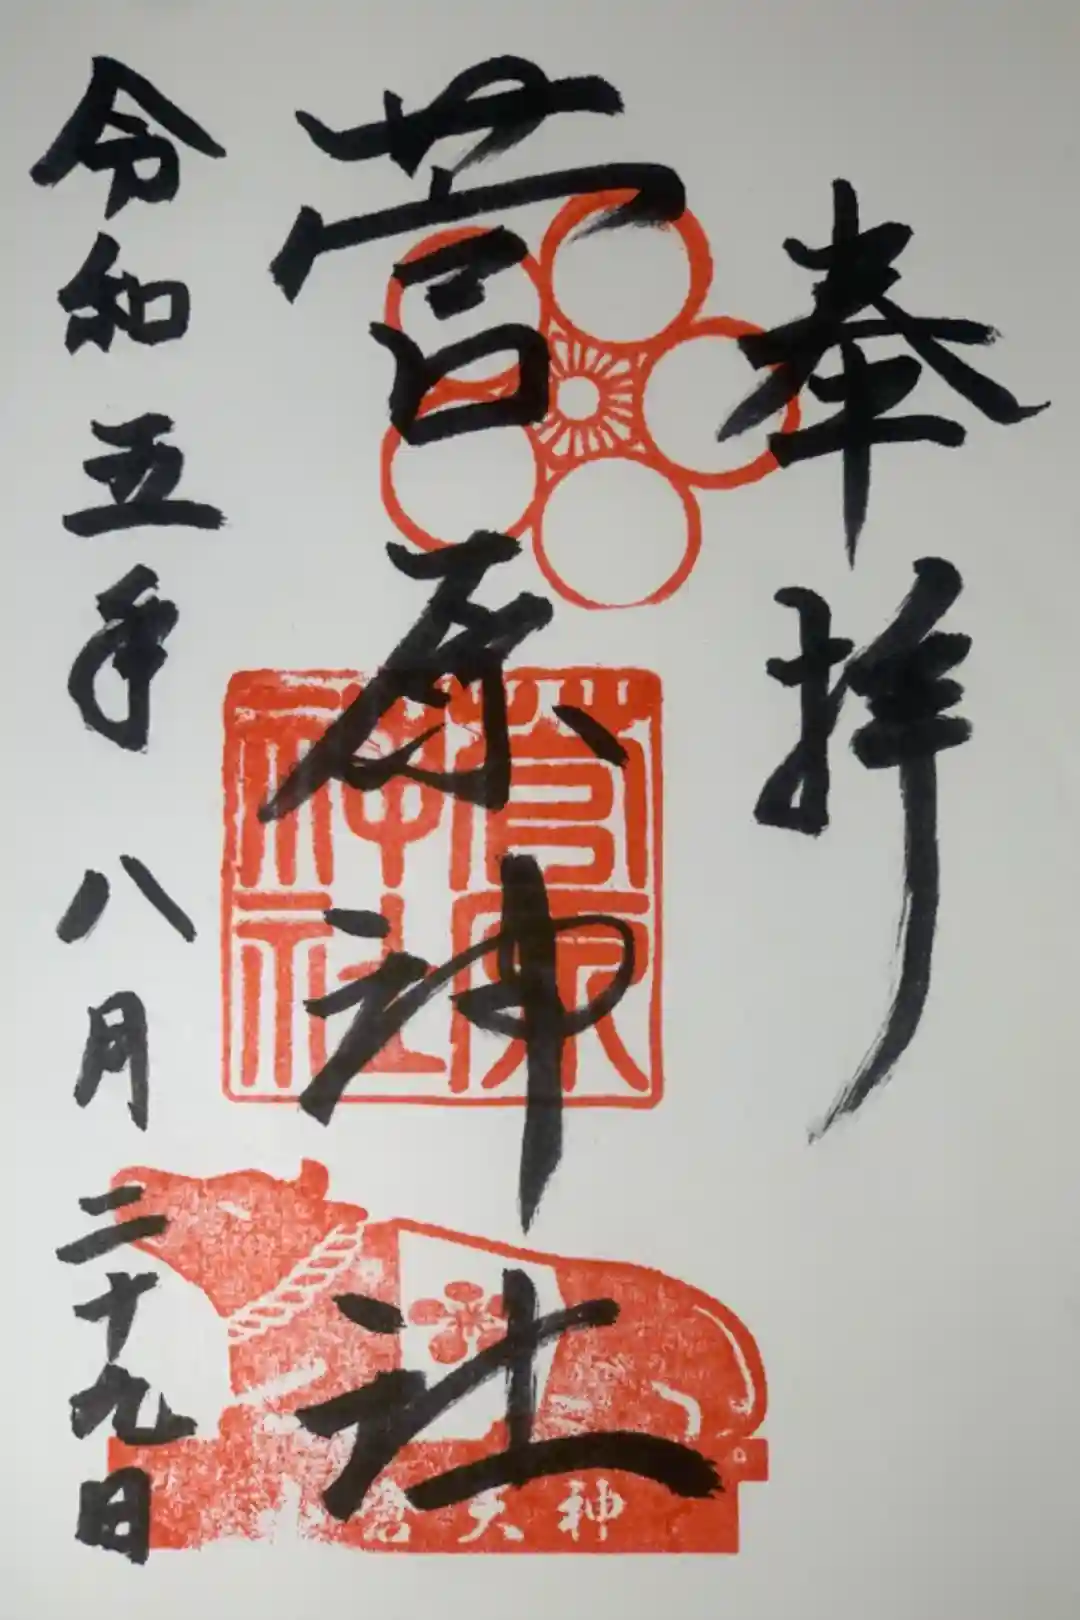 奉拝
菅原神社
菅原神社
令和五年八月二十九日
倉天神